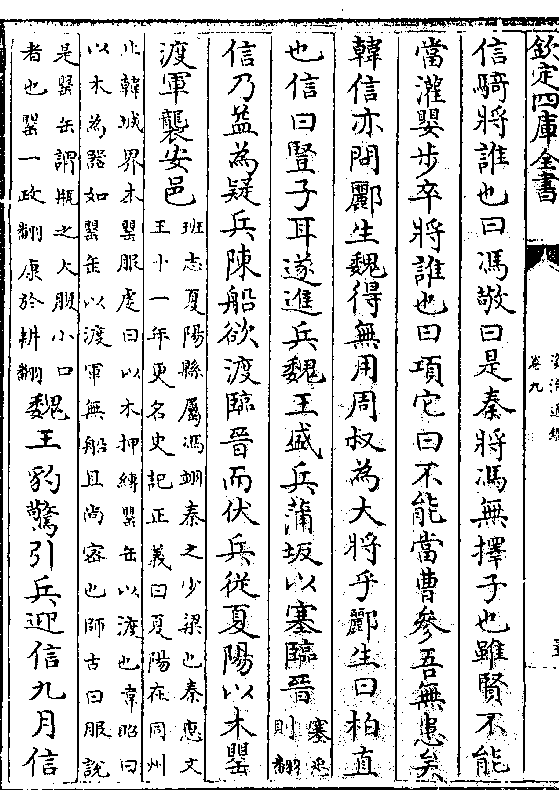 欽定四庫全書
卷九
信騎將誰也曰馮敬曰是秦將馮無擇子也雖賢不能
當灌嬰步卒將誰也曰項它曰不能當曹參吾無患矣
韓信亦問酈生魏得無用周叔為大將乎酈生曰柏直
也信曰豎子耳遂進兵魏王盛兵蒲坂以塞臨晉
塞悉
則翻
信乃益為疑兵陳船欲渡臨晉而伏兵從夏陽以木罌
渡軍襲安邑
班志夏陽縣屬馮翊秦之少梁也秦惠文
王十一年更名史記正義曰夏陽在同州
北韓城界木罌服虔曰以木押縛罌缶以渡也韋昭曰
以木為器如罌缶以渡軍無船且尚密也師古曰服說
是罌缶謂瓶之大腹小口
者也罌一政翻康於耕翻
魏王豹驚引兵迎信九月信